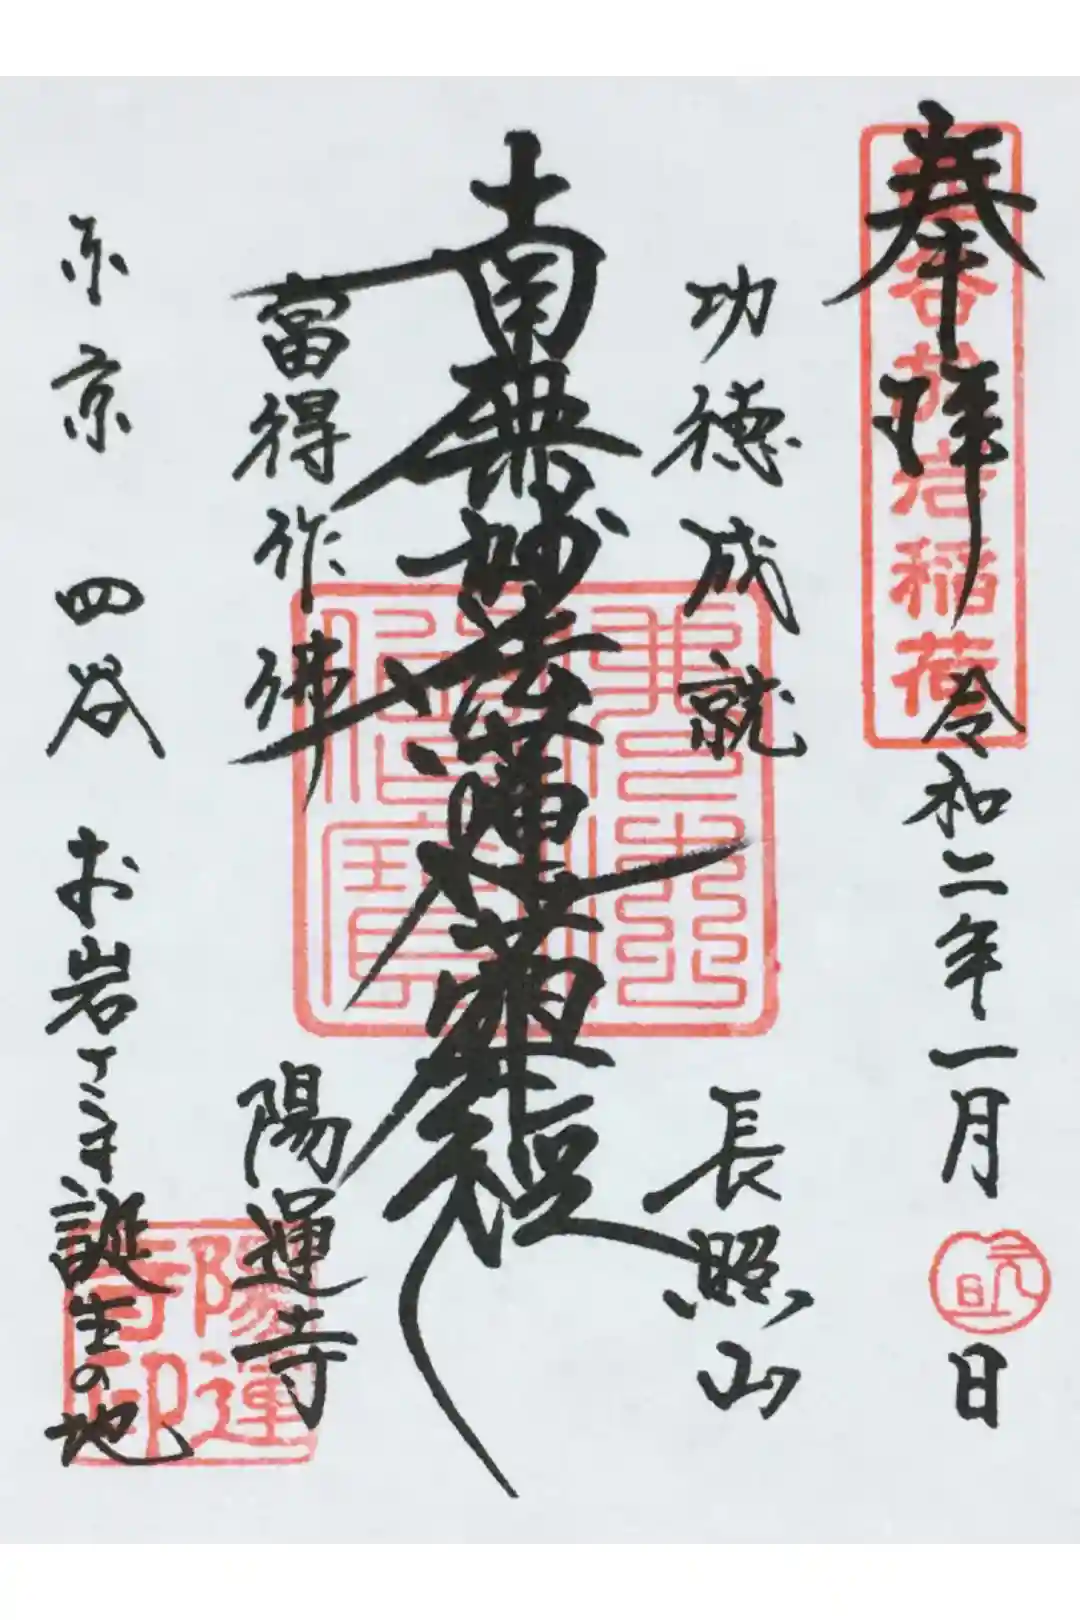 奉拝
四谷於岩稲荷
令和二年一月元旦日
功徳成就
長照山
南無妙法蓮華経
當得作佛
陽運寺
陽運寺印
東京 四谷 お岩さま誕生の地